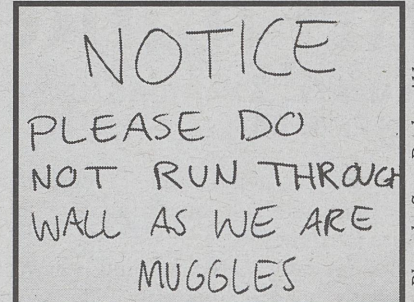 NOTICE
PLEASE DO
NOT RUN THROUGH
WALL AS WE ARE
MUGGLES